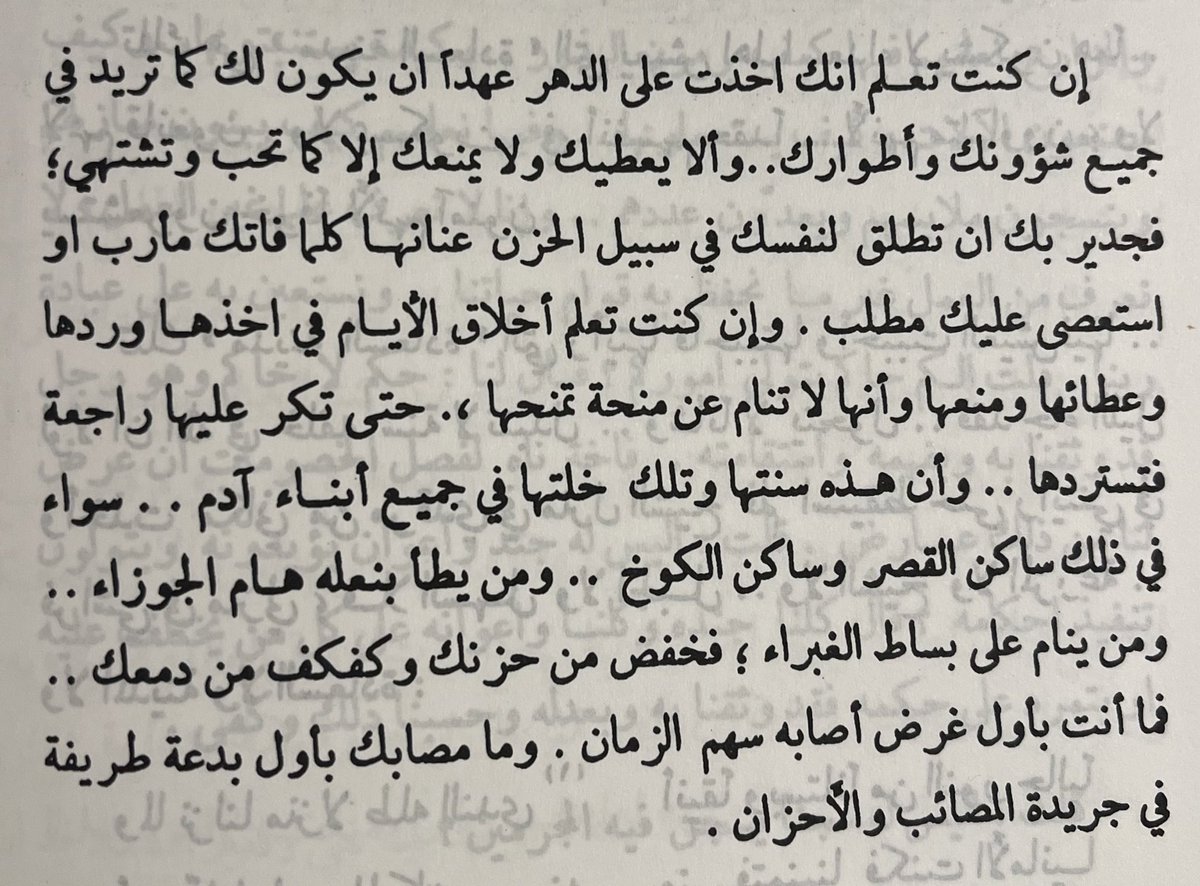 إن كنت تعـلم انك اخذت على الدهر عهداً ان يكون لك كما تريد في
جميـع شؤونك وأطوارك..وألا يعطيك ولا يمنعك إلا كما تحب وتشتهي؛
فجدير بك ان تطلق لنفسك في سبيل الحزن عنانهـا كلما فاتك مأرب او
استعصى عليك مطلب . وإن كنت تعلم أخلاق الأيـام في اخذهـا وردها
وعطائها ومنعها وأنها لا تنام عن منحة تمنحها ،. حتى تكر عليها راجعة
فتستردها .. وأن هـذه سنتها وتلك خلتها في جميـع أبنـاء آدم . . سواء
في ذلك ساكن القصر وساكن الكوخ .. ومن يطأ بنعله هـام الجوزاء ..
ومن ينام على بساط الغبراء ؛ فخفض من حزنك وكفكف من دمعك ..
فما أنت بأول غرض أصابه سهم الزمان . وما مصابك بأول بدعة طريفة
في جريدة المصائب والأحزان .